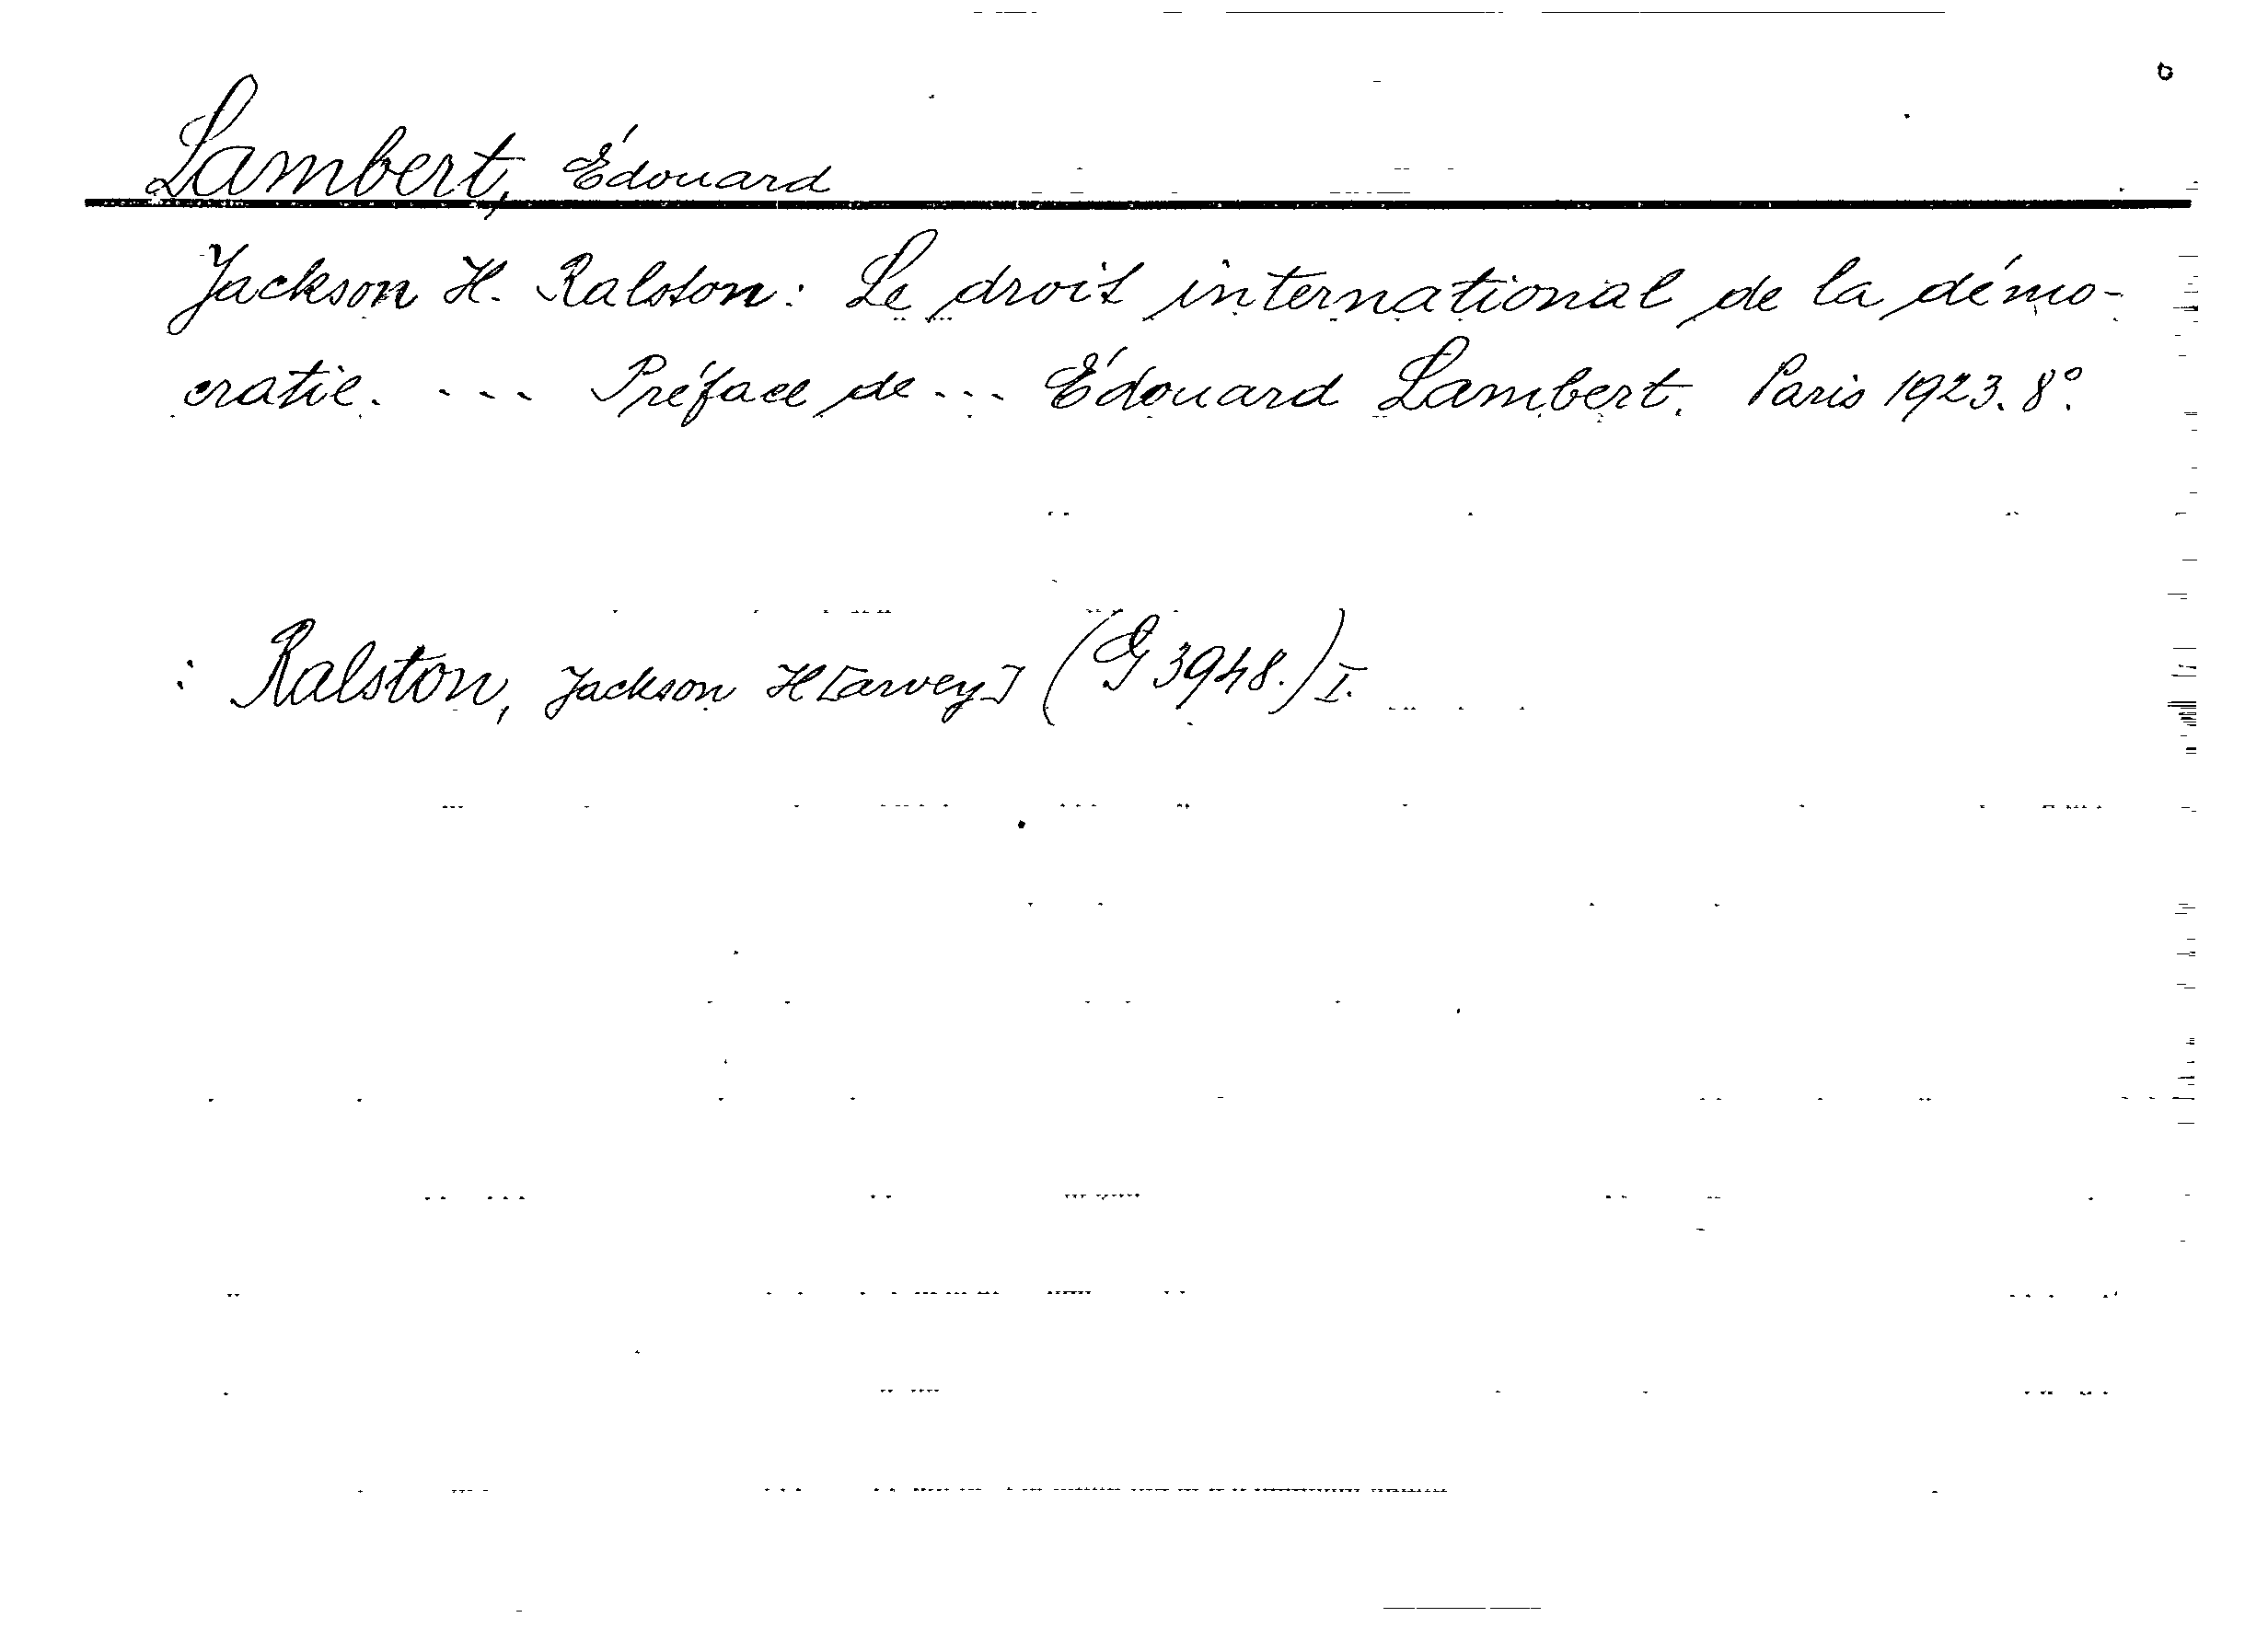 Lambert, Édouard
Jackson H. Ralston: Le droit international de la démo-
cratie. ... Préface de ... Édouard Lambert. Paris 1923. 8°.
: Ralston, Jackson H[arvey] (G 3948.) I.